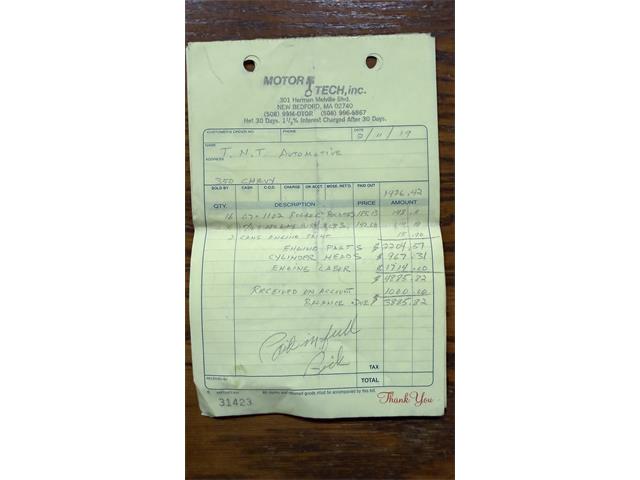 MOTOR
TECH, inc.
301 Herman Melville Blvd.
NEW BEDFORD, MA 02740
(508) 99M-OTOR (508) 996-6867
Net 30 Days. 1½% Interest Charged After 30 Days.
CUSTOMER'S ORDER NO. PHONE DATE 2/11/19
NAME T.N.T. AUTOMOTIVE
ADDRESS
350 CHEVY
SOLD BY CASH C.O.D. CHARGE ON ACCT. MDSE. RET'D. PAID OUT 1926.42
QTY. DESCRIPTION PRICE AMOUNT
16 1102 185.13
142.50
2 CANS ENGINE PAINT
ENGINE PARTS $2204.51
CYLINDER HEADS $967.31
ENGINE LABOR $1714.00
$4885.82
RECEIVED ON ACCOUNT 1000.00
BALANCE DUE $3885.82
Paid in full
Rick
TAX
RECEIVED BY
TOTAL
31423
All claims and returned goods must be accompanied by this bill.
Thank You